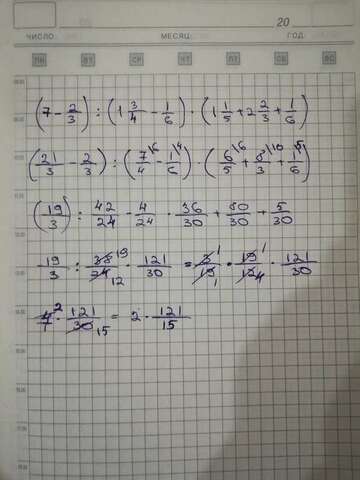 20
ЧИСЛО МЕСЯЦ ГОД
ПН ВТ СР ЧТ ПТ СБ ВС
(7 - 2/3) : (1 3/4 - 1/6) · (1 1/5 + 2 2/3 + 1/6)
(21/3 - 2/3) : (7/4 - 1/6) · (6/5 + 8/3 + 1/6)
(19/3) : 42/24 - 4/24 · 36/30 + 80/30 + 5/30
19/3 : 38/24 19 12 · 121/30 = 3/19 1 1 · 19/12 1 4 · 121/30
4/1 2 · 121/30 15 = 2 · 121/15